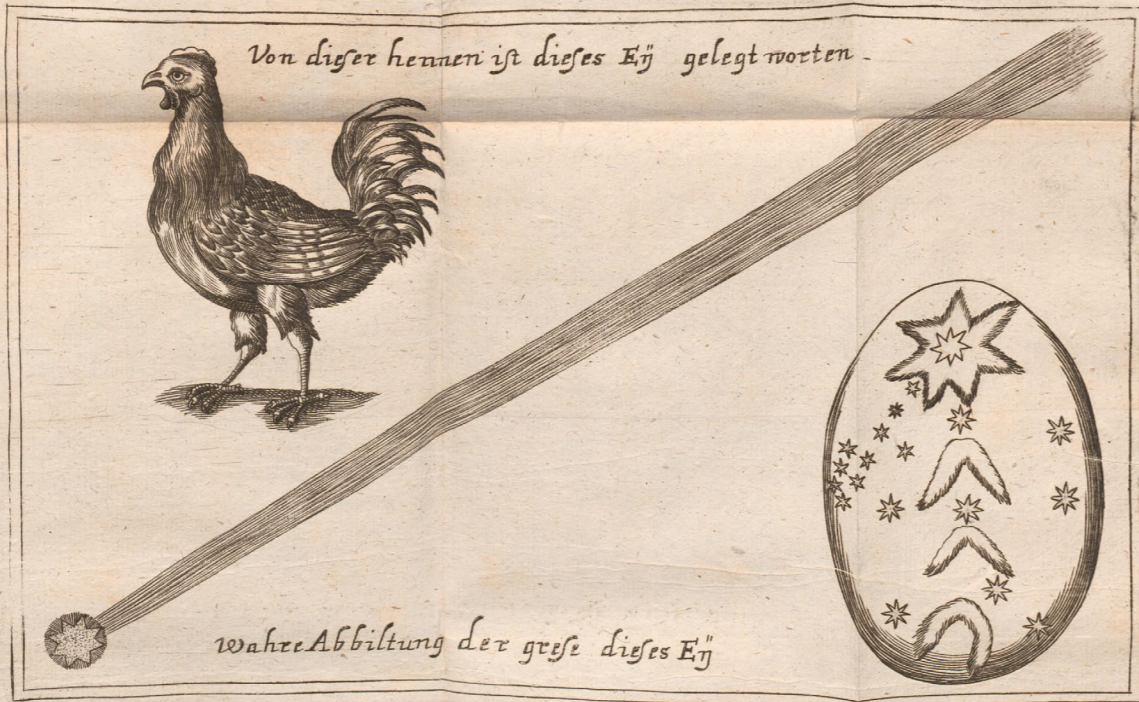 Von dieſer hennen iſt dieſes Eÿ gelegt worten.
Wahre Abbiltung der greſe dieſes Eÿ